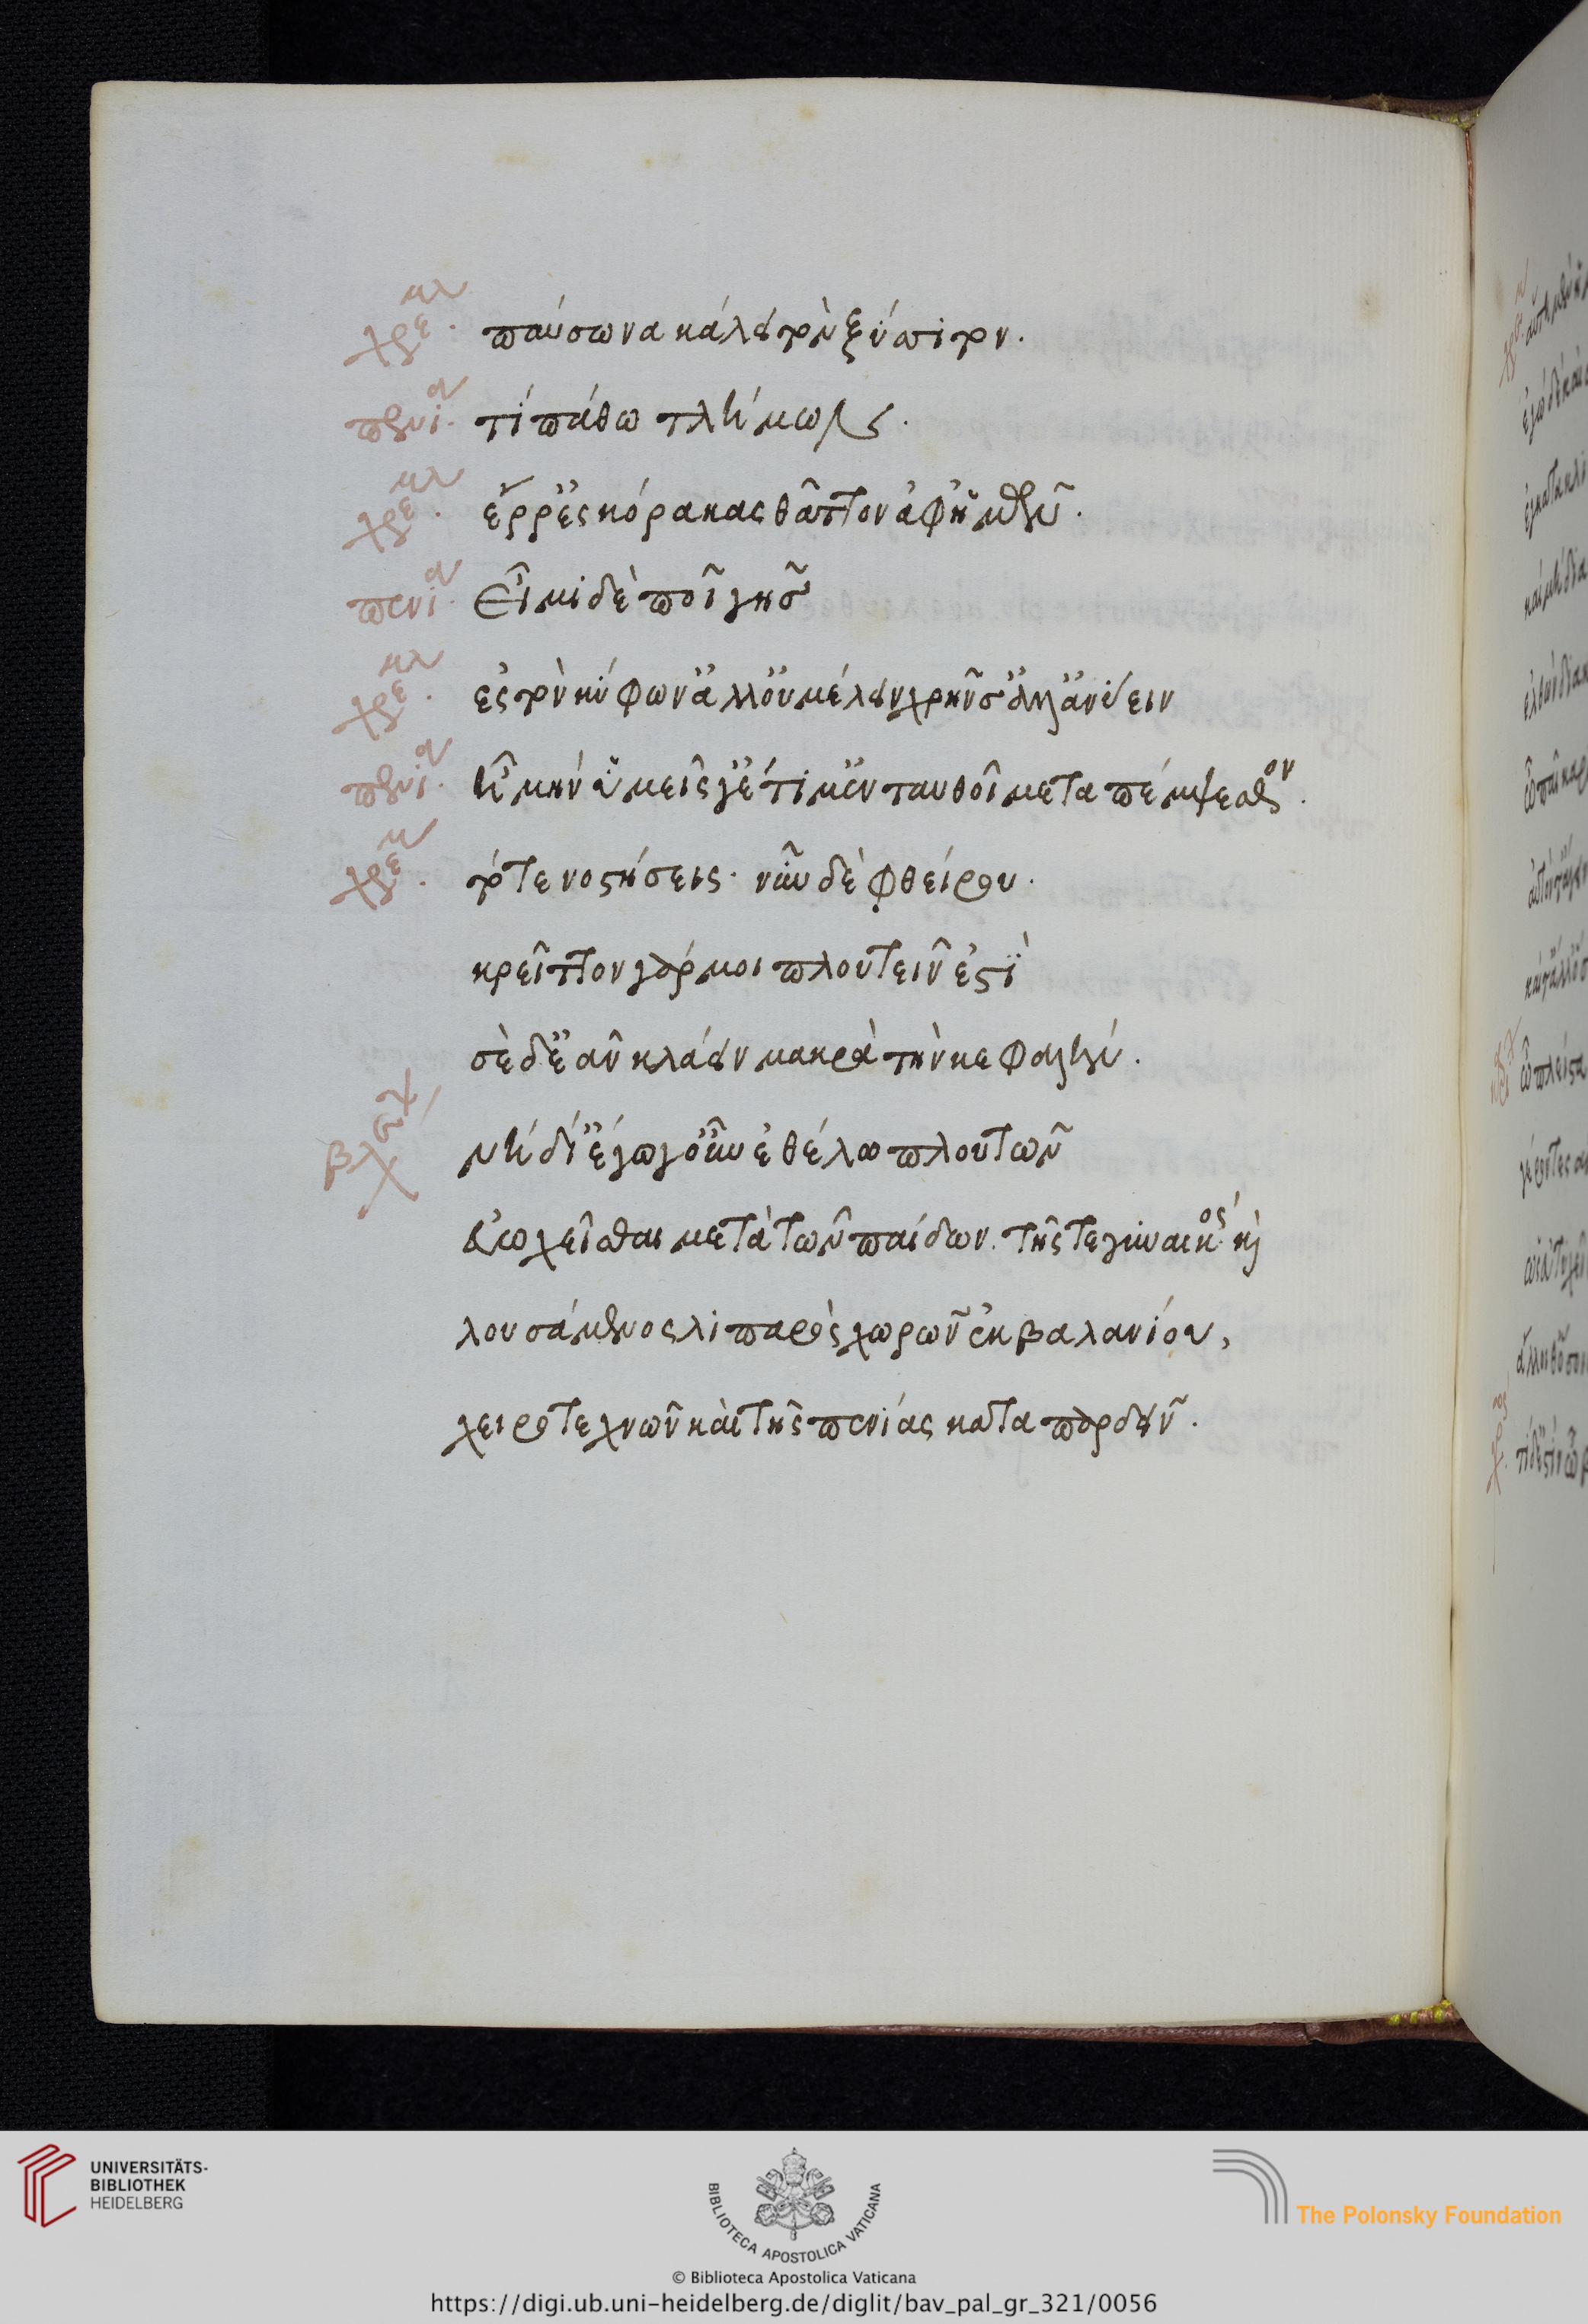 χρεμυλ. παύσωνα κάλει τὸν ξύσσιτον.
πενία. τί πάθω τλήμων.
χρεμυλ. ἔρρ' ἐς κόρακας θᾶττον ἀφ' ἡμῶν.
πενία. εἶμι δὲ ποῖ γῆς
χρεμυλ. ἐς τὸν κύφων' ἀλλ' οὐ μέλλειν χρῆν σ' ἀλλ' ἀνύειν
πενία. ἦ μὴν ὑμεῖς γ' ἔτι μ' ἐνταυθοῖ μεταπέμψεσθον.
χρεμ. τότε νοστήσεις· νῦν δὲ φθείρου.
κρεῖττον γάρ μοι πλουτεῖν ἐστὶ
σὲ δ' ἐᾶν κλάειν μακρὰ τὴν κεφαλήν.
βλεψ νὴ δί' ἔγωγ' οὖν ἐθέλω πλουτῶν
εὐωχεῖσθαι μετὰ τῶν παίδων. τῆς τε γυναικός· καὶ
λουσάμενος λιπαρὸς χωρῶν ἐκ βαλανίου,
χειροτεχνῶν καὶ τῆς πενίας καταπαρδεῖν.
UNIVERSITÄTS-
BIBLIOTHEK
HEIDELBERG
BIBLIOTECA APOSTOLICA VATICANA
The Polonsky Foundation
© Biblioteca Apostolica Vaticana
https://digi.ub.uni-heidelberg.de/diglit/bav_pal_gr_321/0056